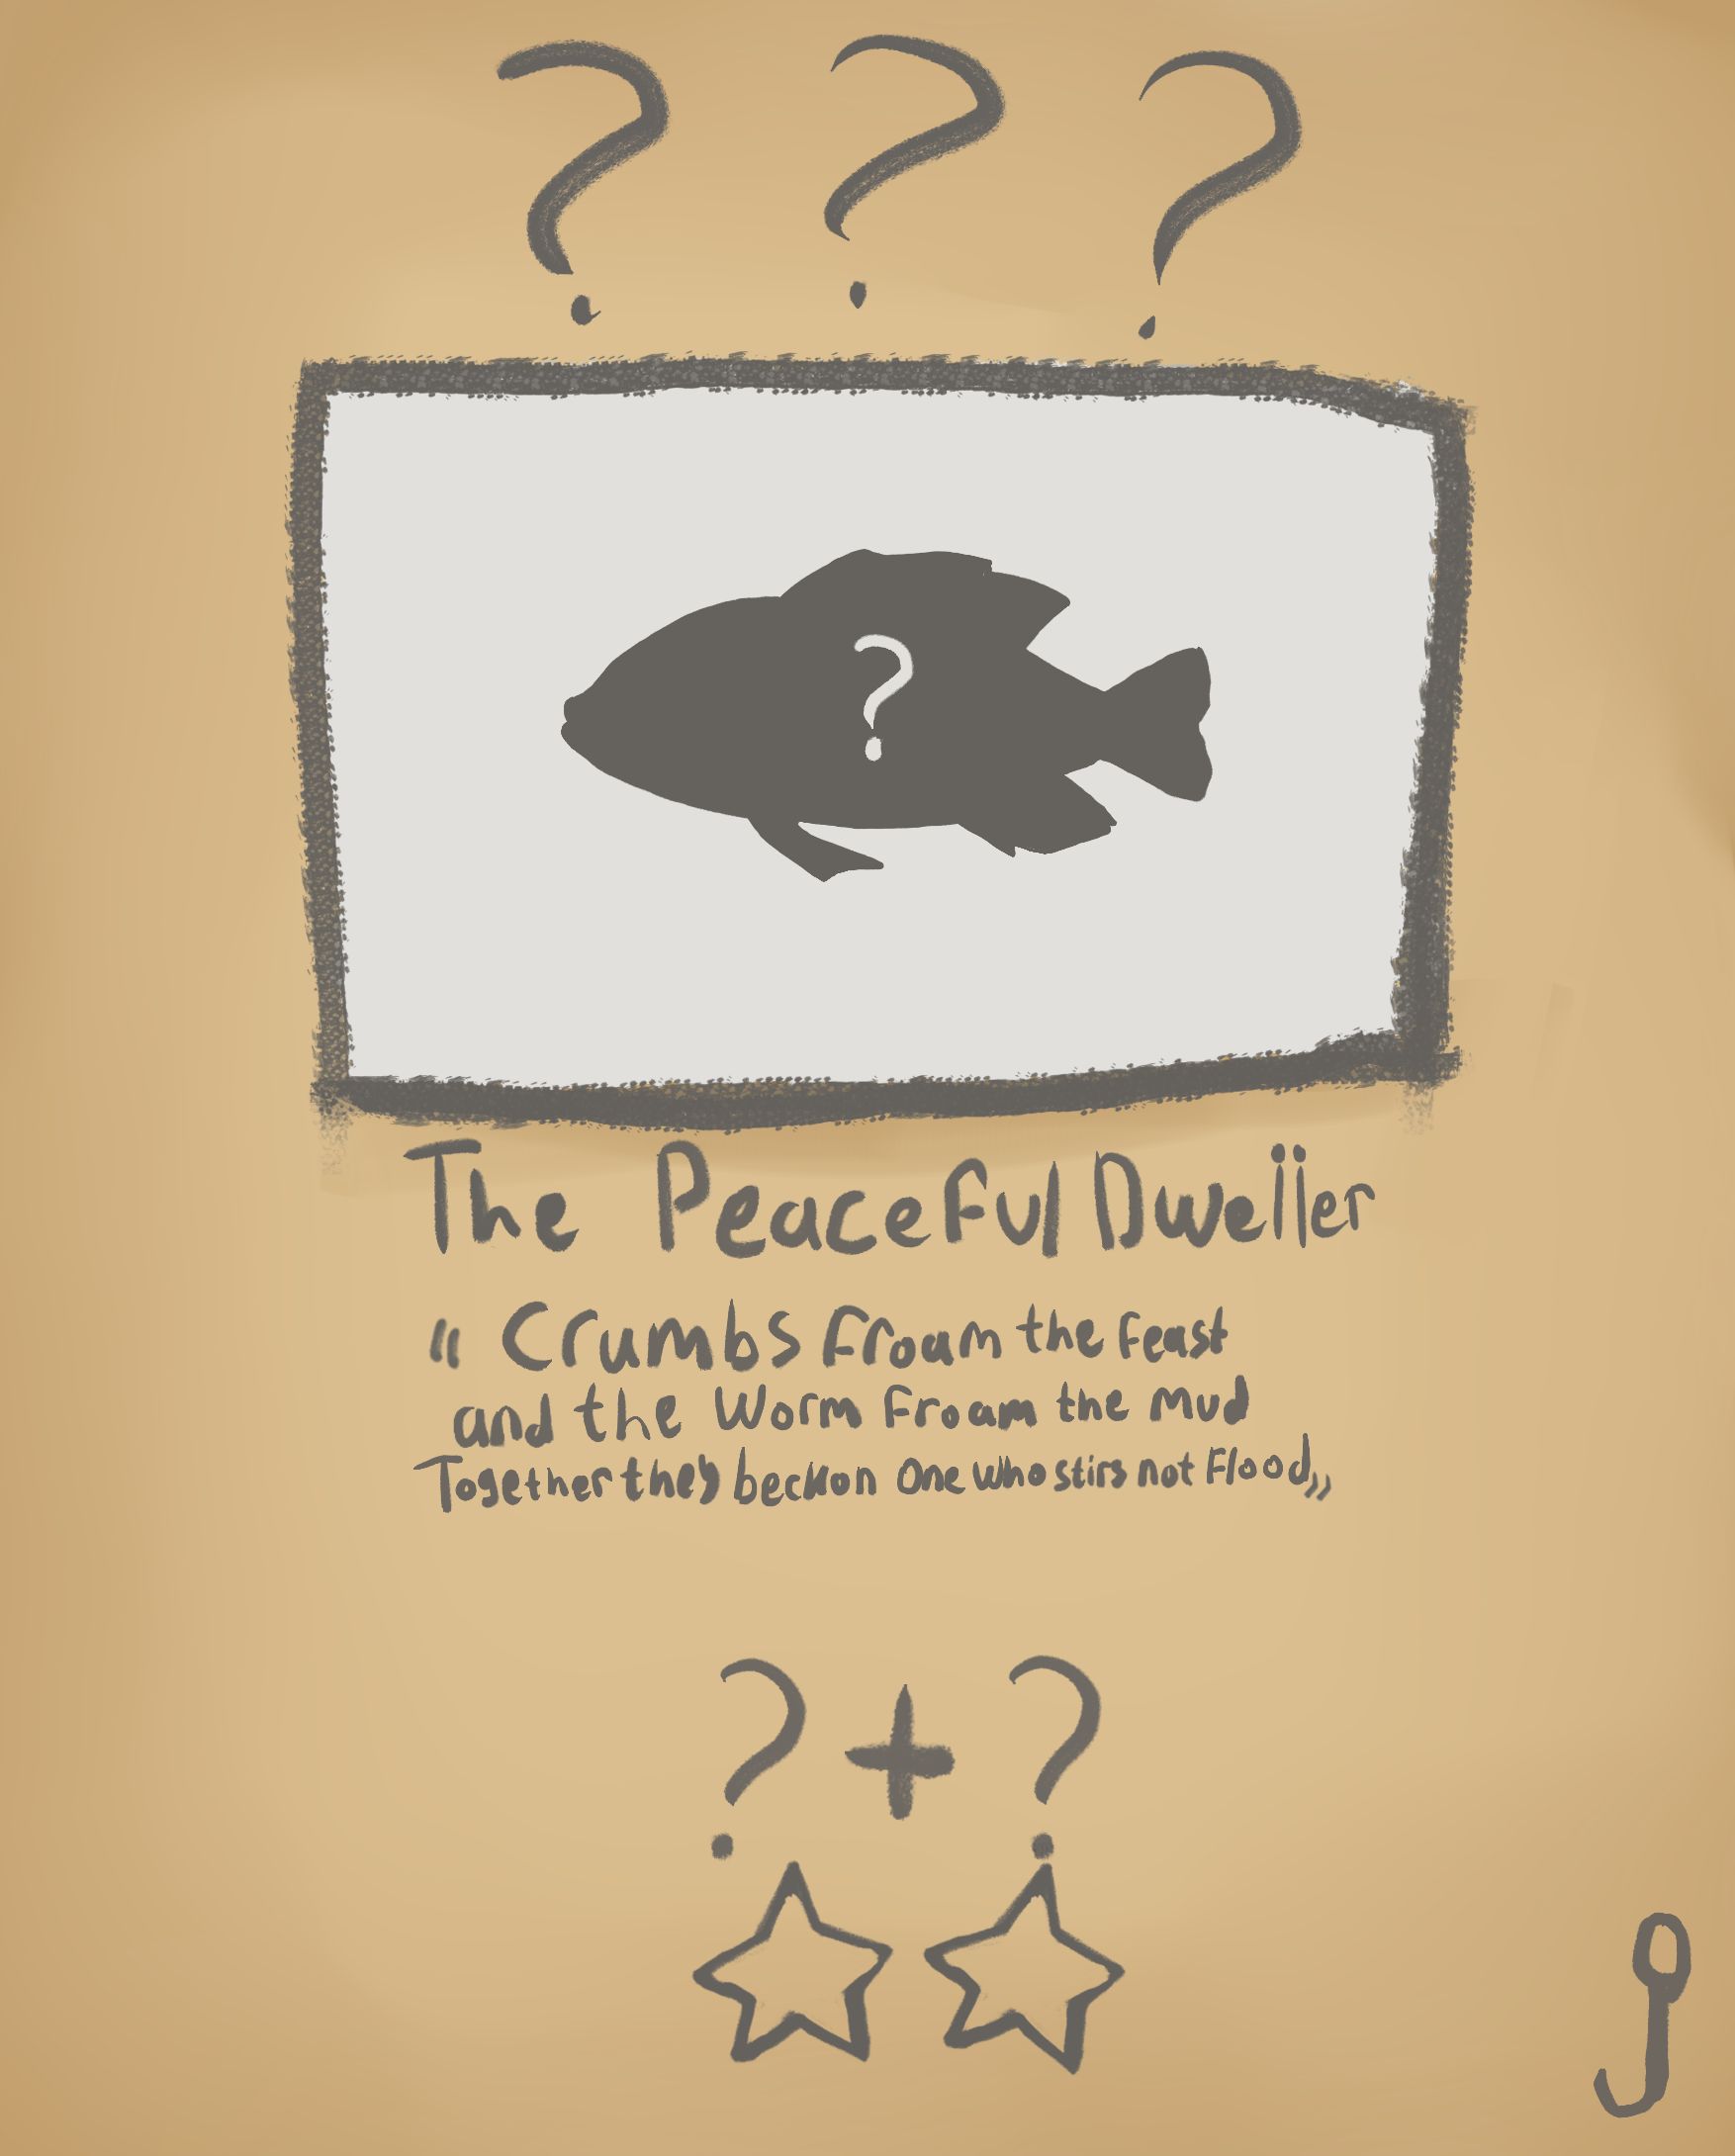 ? ? ?
?
The Peaceful Dweller
" Crumbs froam the feast
and the Worm froam the mud
Together they beckon One who stirs not Flood„
? + ?